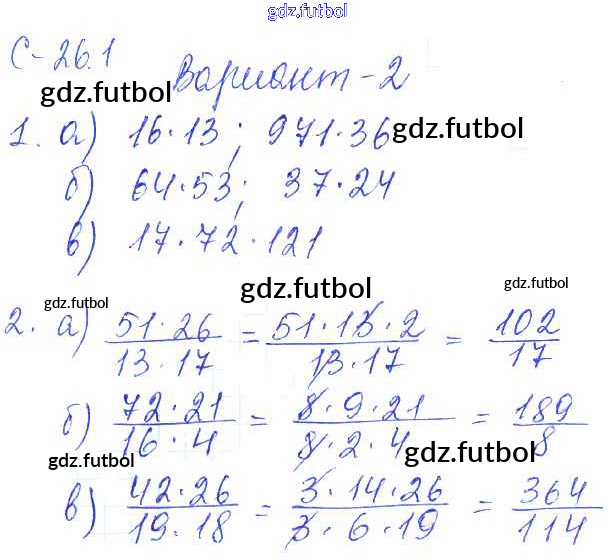 gdz.futbol
С-26.1
Вариант-2
gdz.futbol
1. а) 16·13; 971·36 gdz.futbol
б) 64·53; 37·24
в) 17·72·121
gdz.futbol
gdz.futbol
gdz.futbol
2. а) 51·26/13·17 = 51·13·2/13·17 = 102/17
б) 72·21/16·4 = 8·9·21/8·2·4 = 189/8
gdz.futbol
gdz.futbol
в) 42·26/19·18 = 3·14·26/3·6·19 = 364/114
gdz.futbol